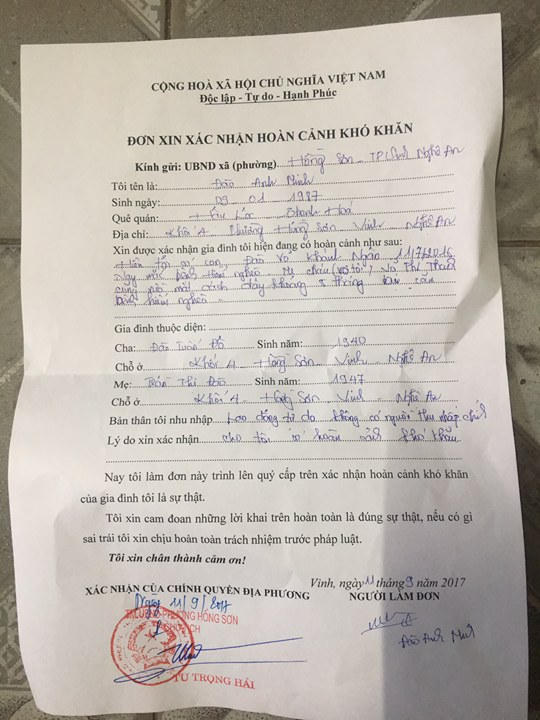 CỘNG HOÀ XÃ HỘI CHỦ NGHĨA VIỆT NAM
Độc lập - Tự do - Hạnh Phúc
ĐƠN XIN XÁC NHẬN HOÀN CẢNH KHÓ KHĂN
Kính gửi: UBND xã (phường) Hồng Sơn TP Vinh Nghệ An
Tôi tên là: Đào Anh Minh
Sinh ngày: 09 01 1987
Quê quán: Thanh Hoá
Địa chỉ: Khối 4 Phường Hồng Sơn Vinh Nghệ An
Xin được xác nhận gia đình tôi hiện đang có hoàn cảnh như sau:
Hiện tôi có con, Đào Võ Khánh Ngân
mắc bệnh hiểm nghèo. Mẹ cháu (vợ tôi), Võ Thị
cũng mới mất cách đây khoảng 5 tháng
bệnh hiểm nghèo
Gia đình thuộc diện:
Cha: Đào Tuấn Đỗ Sinh năm: 1940
Chỗ ở Khối 4 Hồng Sơn Vinh Nghệ An
Mẹ: Thị Đào Sinh năm: 1947
Chỗ ở Khối 4 Hồng Sơn Vinh Nghệ An
Bản thân tôi nhu nhập Lao động tự do không có nguồn thu nhập
Lý do xin xác nhận cho tôi có hoàn cảnh khó khăn
Nay tôi làm đơn này trình lên quý cấp trên xác nhận hoàn cảnh khó khăn
của gia đình tôi là sự thật.
Tôi xin cam đoan những lời khai trên hoàn toàn là đúng sự thật, nếu có gì
sai trái tôi xin chịu hoàn toàn trách nhiệm trước pháp luật.
Tôi xin chân thành cảm ơn!
Vinh, ngày 11 tháng 9 năm 2017
XÁC NHẬN CỦA CHÍNH QUYỀN ĐỊA PHƯƠNG NGƯỜI LÀM ĐƠN
Ngày 11/9/2017
PHƯỜNG HỒNG SƠN
Đào Anh Minh
TỪ TRỌNG HẢI